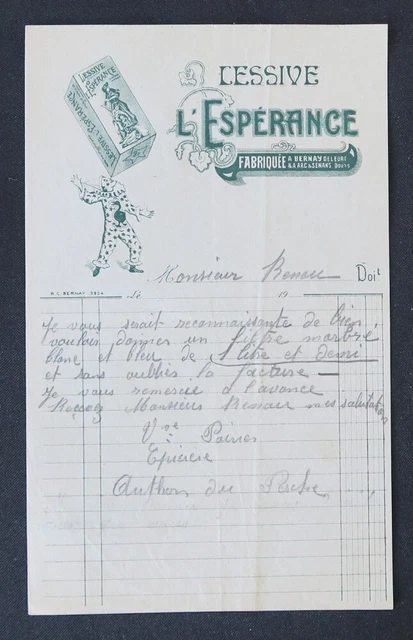 LESSIVE
L'ESPÉRANCE
LESSIVE
L'ESPÉRANCE
FABRIQUÉE A BERNAY DE L'EURE
& A ARC & SENANS DOUBS
Monsieur Renou Doit
R.L. BERNAY 19
Je vous serait reconnaissante de bien
vouloir donner un filtre marbré
blanc et bleu de 1 litre et demi
et sans oublier la facture —
Je vous remercie à l'avance
Recevez Monsieur Renou mes salutations
Vve
Epicière
Authon du Perche